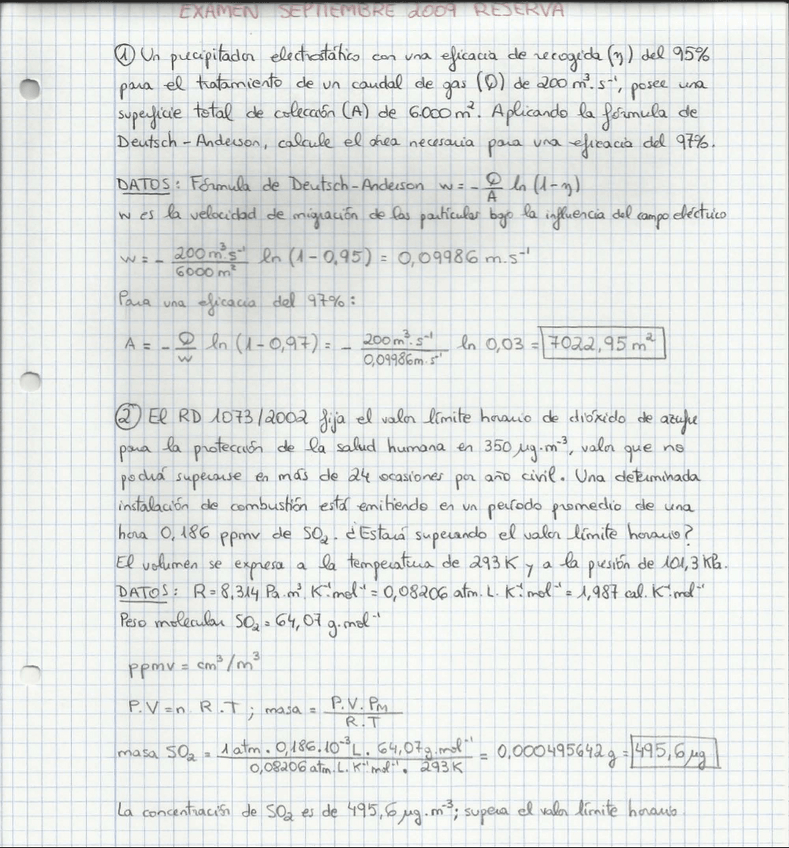 EXAMEN SEPTIEMBRE 2009 RESERVA
① Un precipitador electrostático con una eficacia de recogida (η) del 95%
para el tratamiento de un caudal de gas (Q) de 200 m³.s⁻¹, posee una
superficie total de colección (A) de 6.000 m². Aplicando la fórmula de
Deutsch-Anderson, calcule el área necesaria para una eficacia del 97%.
DATOS: Fórmula de Deutsch-Anderson w = - Q/A ln (1-η)
w es la velocidad de migración de las partículas bajo la influencia del campo eléctrico
w = - 200 m³s⁻¹/6000 m² ln (1-0,95) = 0,09986 m.s⁻¹
Para una eficacia del 97%:
A = - Q/w ln (1-0,97) = - 200 m³.s⁻¹/0,09986 m.s⁻¹ ln 0,03 = 7022,95 m²
② El RD 1073/2002 fija el valor límite horario de dióxido de azufre
para la protección de la salud humana en 350 μg.m⁻³, valor que no
podrá superarse en más de 24 ocasiones por año civil. Una determinada
instalación de combustión está emitiendo en un período promedio de una
hora 0,186 ppmv de SO₂. ¿Estará superando el valor límite horario?
El volumen se expresa a la temperatura de 293 K y a la presión de 101,3 KPa.
DATOS: R = 8,314 Pa.m³.K⁻¹mol⁻¹ = 0,08206 atm.L.K⁻¹mol⁻¹ = 1,987 cal.K⁻¹mol⁻¹
Peso molecular SO₂ = 64,07 g.mol⁻¹
ppmv = cm³/m³
P.V = n R.T ; masa = P.V.PM/R.T
masa SO₂ = 1 atm . 0,186.10⁻³ L . 64,07 g.mol⁻¹/0,08206 atm.L.K⁻¹mol⁻¹ . 293 K = 0,000495642 g = 495,6 μg
La concentración de SO₂ es de 495,6 μg.m⁻³; supera el valor límite horario.